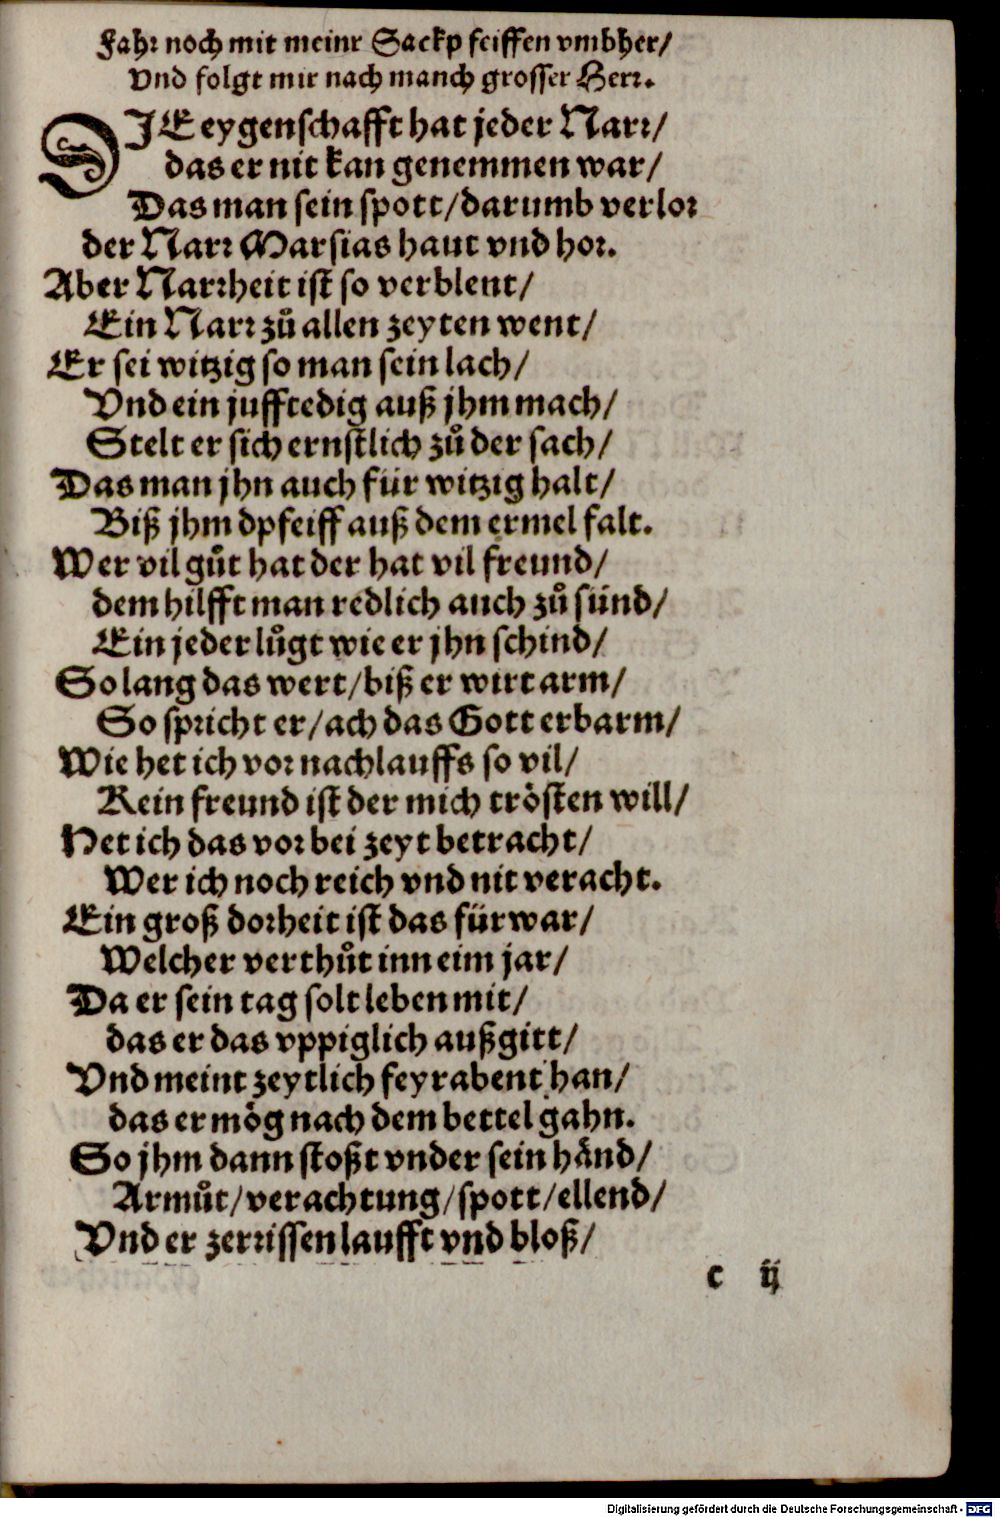 Fahr noch mit meinr Sackpfeiffen vmbher/
Vnd folgt mir nach manch grosser Herr.
DJE eygenschafft hat jeder Narr/
das er nit kan genemmen war/
Das man sein spott/darumb verlor
der Narr Marsias haut vnd hor.
Aber Narrheit ist so verblent/
Ein Narr zů allen zeyten went/
Er sei witzig so man sein lach/
Vnd ein jufftedig auß jhm mach/
Stelt er sich ernstlich zů der sach/
Das man jhn auch für witzig halt/
Biß jhm dpfeiff auß dem ermel falt.
Wer vil gůt hat der hat vil freund/
dem hilfft man redlich auch zů sünd/
Ein jeder lůgt wie er jhn schind/
So lang das wert/biß er wirt arm/
So spricht er/ach das Gott erbarm/
Wie het ich vor nachlauffs so vil/
Kein freund ist der mich trösten will/
Het ich das vor bei zeyt betracht/
Wer ich noch reich vnd nit veracht.
Ein groß dorheit ist das fürwar/
Welcher verthůt inn eim jar/
Da er sein tag solt leben mit/
das er das vppiglich außgitt/
Vnd meint zeytlich feyrabent han/
das er mög nach dem bettel gahn.
So jhm dann stoßt vnder sein händ/
Armůt/verachtung/spott/ellend/
Vnd er zerrissen laufft vnd bloß/
c ij
Digitalisierung gefördert durch die Deutsche Forschungsgemeinschaft - DFG